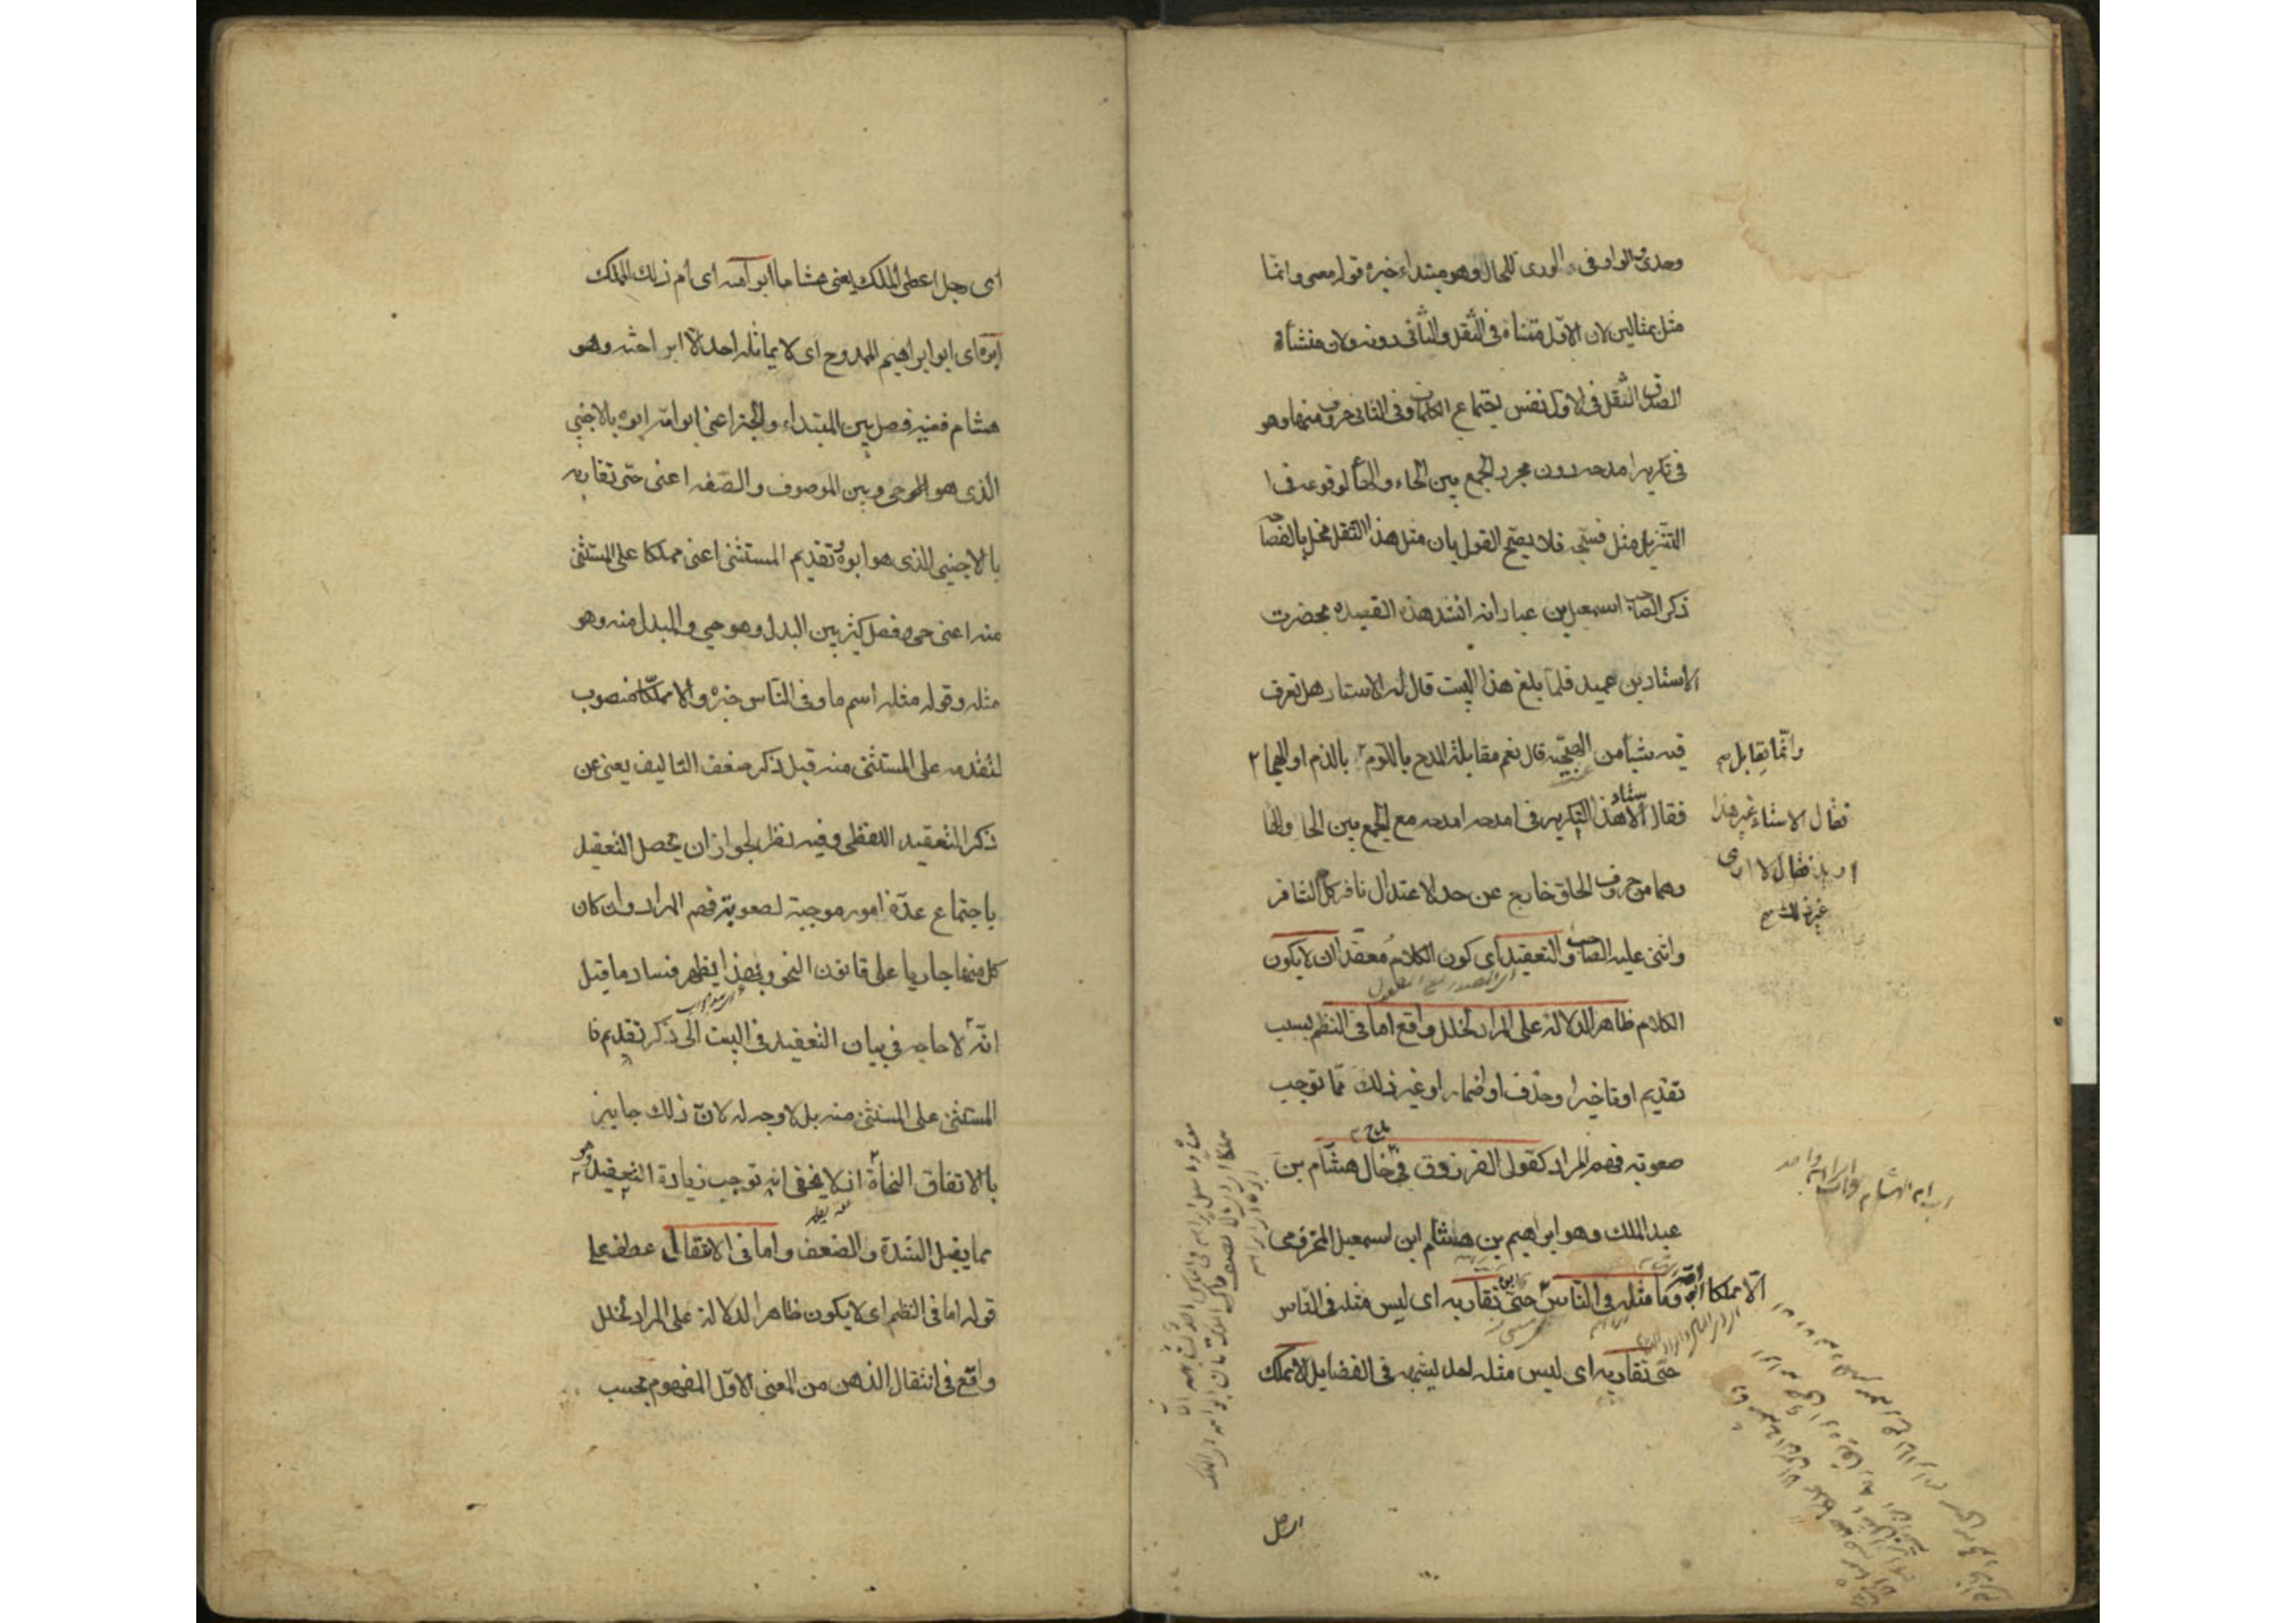 وحدى والواو فى والورى للحال وهو مبتداء خبره قوله معى وانما
مثل بمثالين لان الاول متناه فى الثقل والثانى دونه ولان منشأة
الثقل فى الاول نفس اجتماع الكلمات وفى الثانى حروف منها وهو
فى تكرير امدحه دون مجرد الجمع بين الحاء والهاء لوقوعه فى
التنزيل مثل فسبحه فلا يصح القول بان مثل هذا الثقل مخل بالفصاحة
ذكر الصاحب اسمعيل بن عباد انه انشد هذه القصيده بحضرت
الاستاد بن عميد فلما بلغ هذا البيت قال له الاستاد هل تعرف
فيه شيأ من الهجنة قال نعم مقابلة المدح باللوم بالذم او الهجا
وانما يقابل
فقال الاستاد هذا التكرير فى امدحه امدحه مع الجمع بين الحا والها
فقال الاستاد غير هذا
اريد فقال لا ادرى
غير ذلك
وهما من حروف الحلق خارج عن حد الاعتدال نافر كل التنافر
واثنى عليه الصاحب والتعقيد اى كون الكلام معقدا ان لا يكون
الكلام ظاهر الدلالة على المراد لخلل واقع اما فى النظم بسبب
تقديم او تاخير او حذف او اضمار او غير ذلك مما توجب
صعوبة فهم المراد كقول الفرزدق فى خال هشام بن
عبد الملك وهو ابراهيم بن هشام ابن اسمعيل المخزومى
وما مثله فى الناس حى تقاربه اى ليس مثله فى الناس
الا مملكا
حتى تقاربه اى ليس مثله احد يشبهه فى الفضايل الا مملك
اى رجل
اى رجل اعطى الملك يعنى هشاما ابو امه اى ام ذلك الملك
ابوه اى ابو ابراهيم الممدوح اى لا يماثله احد الا ابن اخته وهو
هشام ففيه فصل بين المبتداء والخبر اعنى ابو امه ابوه بالاجنبى
الذى هو حى وبين الموصوف والصفه اعنى حى تقاربه
بالاجنبى الذى هو ابوه وتقديم المستثنى اعنى مملكا على المستثنى
منه اعنى حى وفصل كثير بين البدل وهو حى والمبدل منه وهو
مثله وقوله مثله اسم ما وفى الناس خبره والا مملكا منصوب
لتقدمه على المستثنى منه قيل ذكر ضعف التاليف يغنى عن
ذكر التعقيد اللفظى وفيه نظر لجواز ان يحصل التعقيد
باجتماع عدة امور موجبة لصعوبة فهم المراد وان كان
كل منها جاريا على قانون النحو وبهذا يظهر فساد ما قيل
انه لا حاجه فى بيان التعقيد فى البيت الى ذكر تقديم
المستثنى على المستثنى منه بل لا وجه له لان ذلك جايز
بالاتفاق النحاة اذ لا يخفى انه توجب زيادة التعقيد وهو
مما يقبل الشدة والضعف واما فى الانتقال عطف على
قوله اما فى النظم اى لا يكون ظاهر الدلالة على المراد لخلل
واقع فى انتقال الذهن من المعنى الاول المفهوم بحسب